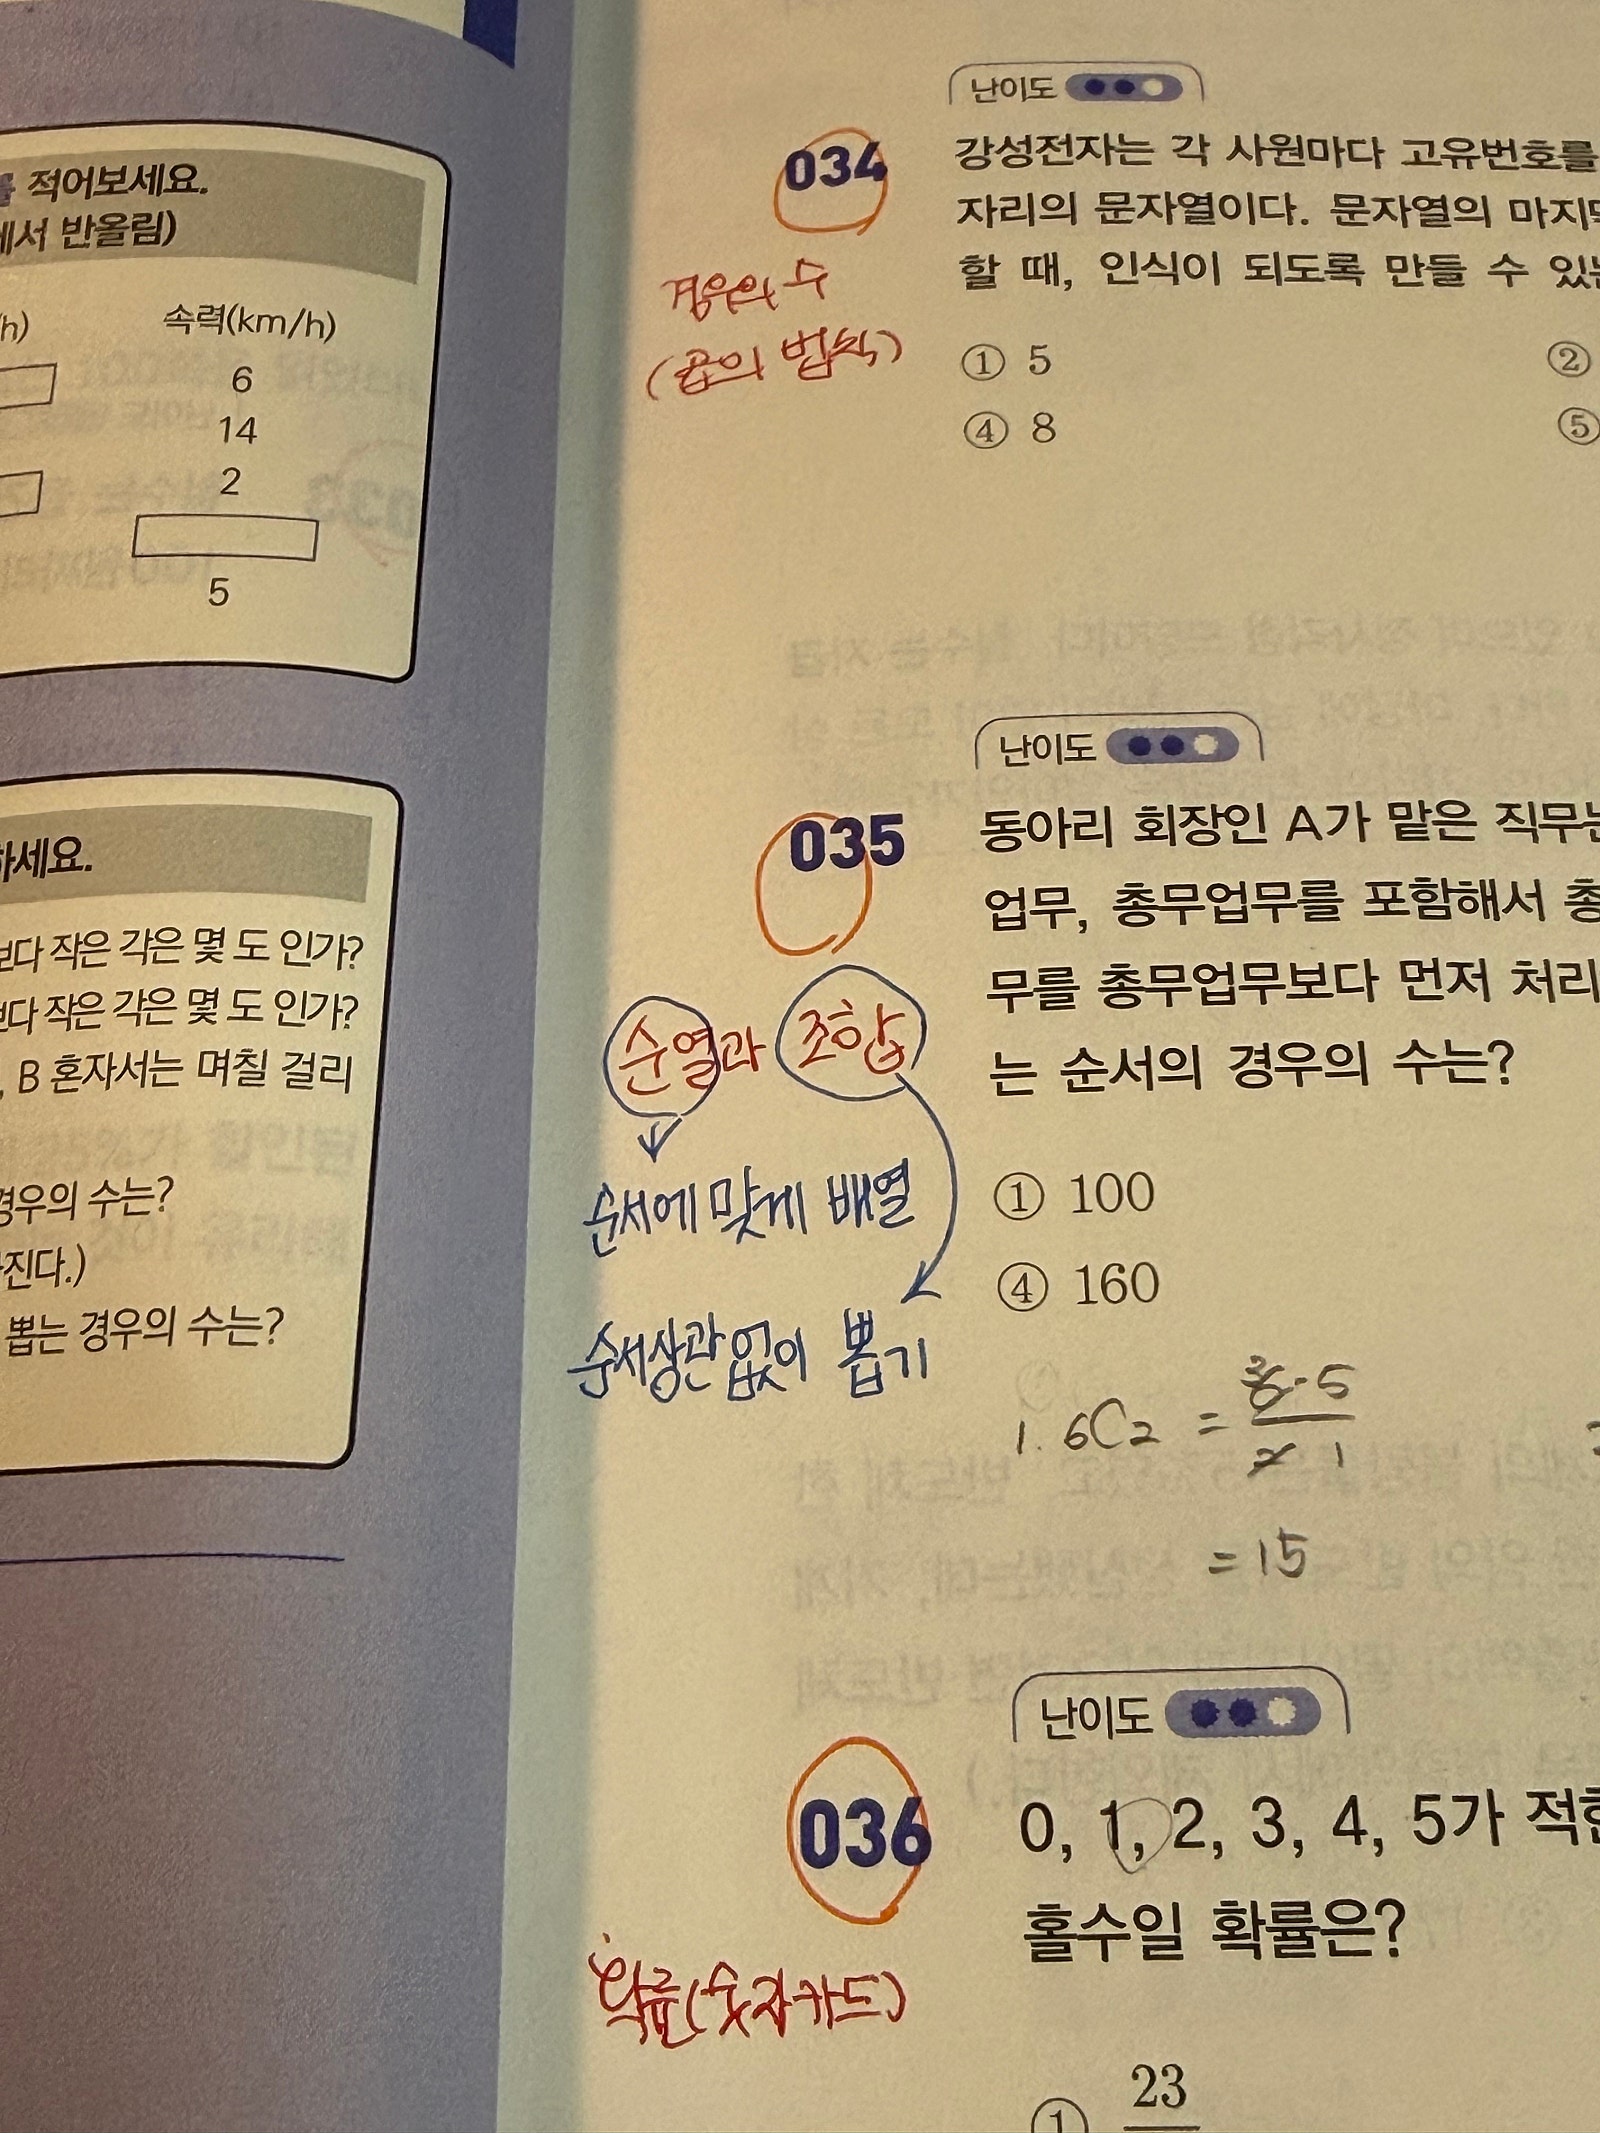 적어보세요.
에서 반올림)
/h) 속력(km/h)
6
14
2
5
하세요.
보다 작은 각은 몇 도 인가?
보다 작은 각은 몇 도 인가?
, B 혼자서는 며칠 걸리
경우의 수는?
진다.)
뽑는 경우의 수는?
난이도
034 강성전자는 각 사원마다 고유번호를
자리의 문자열이다. 문자열의 마지막
할 때, 인식이 되도록 만들 수 있는
경우의 수
(곱의 법칙)
① 5 ②
④ 8 ⑤
난이도
035 동아리 회장인 A가 맡은 직무는
업무, 총무업무를 포함해서 총
무를 총무업무보다 먼저 처리
는 순서의 경우의 수는?
순열과 조합
순서에 맞게 배열
순서상관없이 뽑기
① 100
④ 160
1. 6C2 = 3 6·5 / 2 1
= 15
난이도
036 0, 1, 2, 3, 4, 5가 적힌
홀수일 확률은?
확률(숫자카드)
① 23